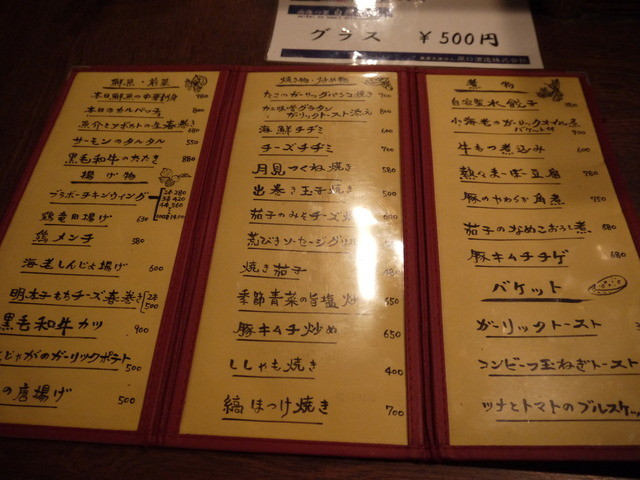 グラス ￥500円
鮮魚・前菜
本日鮮魚の中華刺身 980
本日のカルパッチョ 800
魚介とアボカドの生春巻き 680
サーモンのタルタル 550
黒毛和牛のたたき 880
揚げ物
ブラボーチキンウィング 2本280
3本420
4本560
鶏竜田揚げ 630
鶏メンチ 580
海老しんじょ揚げ 600
明太子もちチーズ春巻き 2本500
黒毛和牛カツ 900
じゃがのガーリックポテト 500
の唐揚げ 500
焼き物・炒め物
たこのガーリックバジコ焼き 700
かに味噌グラタン
ガーリックトースト添え 800
海鮮チヂミ 600
チーズチヂミ 700
月見つくね焼き 580
出巻き玉子焼き 500
茄子のみそチーズ焼
荒びきソーセージグリル
焼き茄子 480
季節青菜の旨塩炒め 650
豚キムチ炒め 650
ししゃも焼き 400
縞ほっけ焼き 700
煮物
自家製水餃子 580
小海老のガーリックオイル煮
バケット付 900
牛もつ煮込み 600
熱々まーぼー豆腐 780
豚のやわらか角煮 750
茄子のなめこおろし煮 580
豚キムチチゲ 680
バケット
ガーリックトースト
コンビーフ玉ねぎトースト
ツナとトマトのブルスケッ